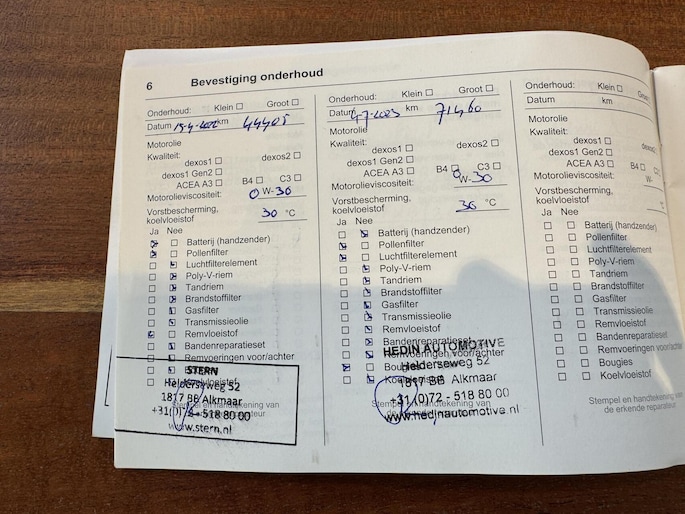 6 Bevestiging onderhoud
Onderhoud: Klein ☐ Groot ☐
Datum km 44405
Motorolie
Kwaliteit:
dexos1 ☐ dexos2 ☐
dexos1 Gen2 ☐
ACEA A3 ☐ B4 ☐ C3 ☐
Motorolieviscositeit: 0 W-30
Vorstbescherming,
koelvloeistof 30 °C
Ja Nee
Batterij (handzender)
Pollenfilter
Luchtfilterelement
Poly-V-riem
Tandriem
Brandstoffilter
Gasfilter
Transmissieolie
Remvloeistof
Bandenreparatieset
Remvoeringen voor/achter
STERN
Helderseweg 52
1817 BB Alkmaar
+31(0)72 - 518 80 00
www.stern.nl
Onderhoud: Klein ☐ Groot ☐
Datum 4-7-2023 km 71460
Motorolie
Kwaliteit:
dexos1 ☐ dexos2 ☐
dexos1 Gen2 ☐
ACEA A3 ☐ B4 ☐ C3 ☐
Motorolieviscositeit: 0 W-30
Vorstbescherming,
koelvloeistof 36 °C
Ja Nee
Batterij (handzender)
Pollenfilter
Luchtfilterelement
Poly-V-riem
Tandriem
Brandstoffilter
Gasfilter
Transmissieolie
Remvloeistof
Bandenreparatieset
Remvoeringen voor/achter
HEDIN AUTOMOTIVE
Helderseweg 52
1817 BB Alkmaar
+31(0)72 - 518 80 00
www.hedinautomotive.nl
Onderhoud: Klein ☐ Groot ☐
Datum km
Motorolie
Kwaliteit:
dexos1 ☐
dexos1 Gen2 ☐
ACEA A3 ☐ B4 ☐ C3 ☐
Motorolieviscositeit: W-
Vorstbescherming,
koelvloeistof
Ja Nee
☐ ☐ Batterij (handzender)
☐ ☐ Pollenfilter
☐ ☐ Luchtfilterelement
☐ ☐ Poly-V-riem
☐ ☐ Tandriem
☐ ☐ Brandstoffilter
☐ ☐ Gasfilter
☐ ☐ Transmissieolie
☐ ☐ Remvloeistof
☐ ☐ Bandenreparatieset
☐ ☐ Remvoeringen voor/achter
☐ ☐ Bougies
☐ ☐ Koelvloeistof
Stempel en handtekening van
de erkende reparateur